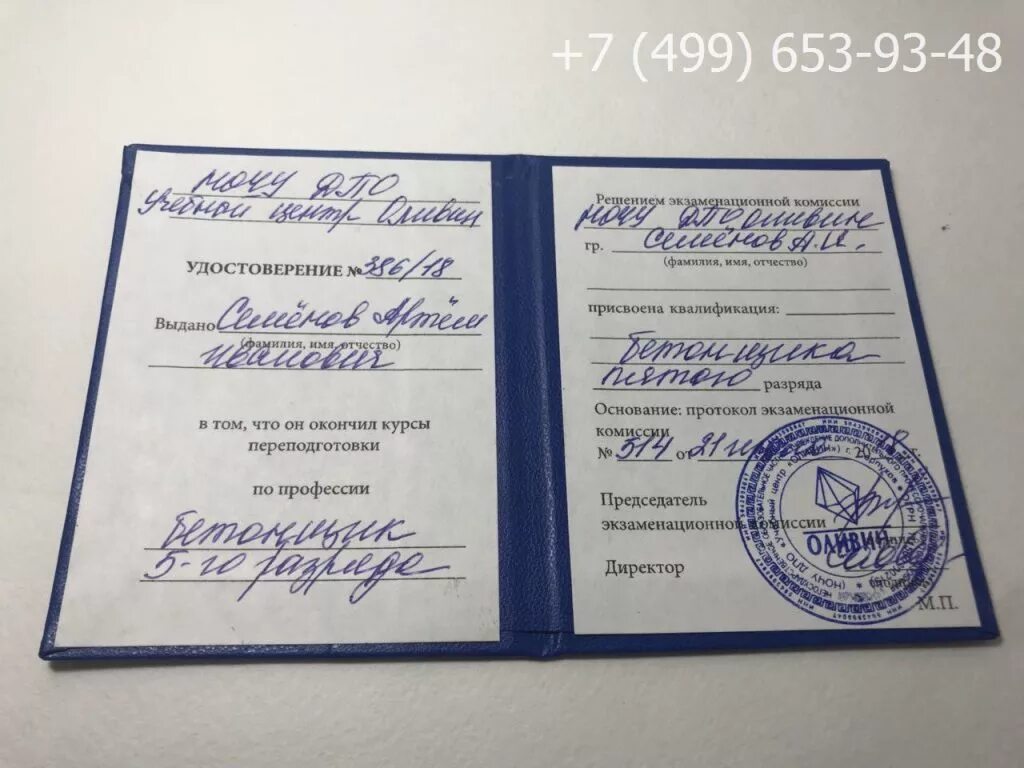 +7 (499) 653-93-48
НОЧУ ДПО
Учебный центр Оливин
УДОСТОВЕРЕНИЕ № 386/18
Выдано Семёнов Артём
(фамилия, имя, отчество)
Иванович
в том, что он окончил курсы
переподготовки
по профессии
бетонщик
5-го разряда
Решением экзаменационной комиссии
НОЧУ ДПО Оливин
гр. Семёнов А.И.
(фамилия, имя, отчество)
присвоена квалификация:
бетонщика
пятого разряда
Основание: протокол экзаменационной
комиссии
№ 514 от 21 20 18 г.
Председатель
экзаменационной комиссии
Директор
ОЛИВИН
М.П.